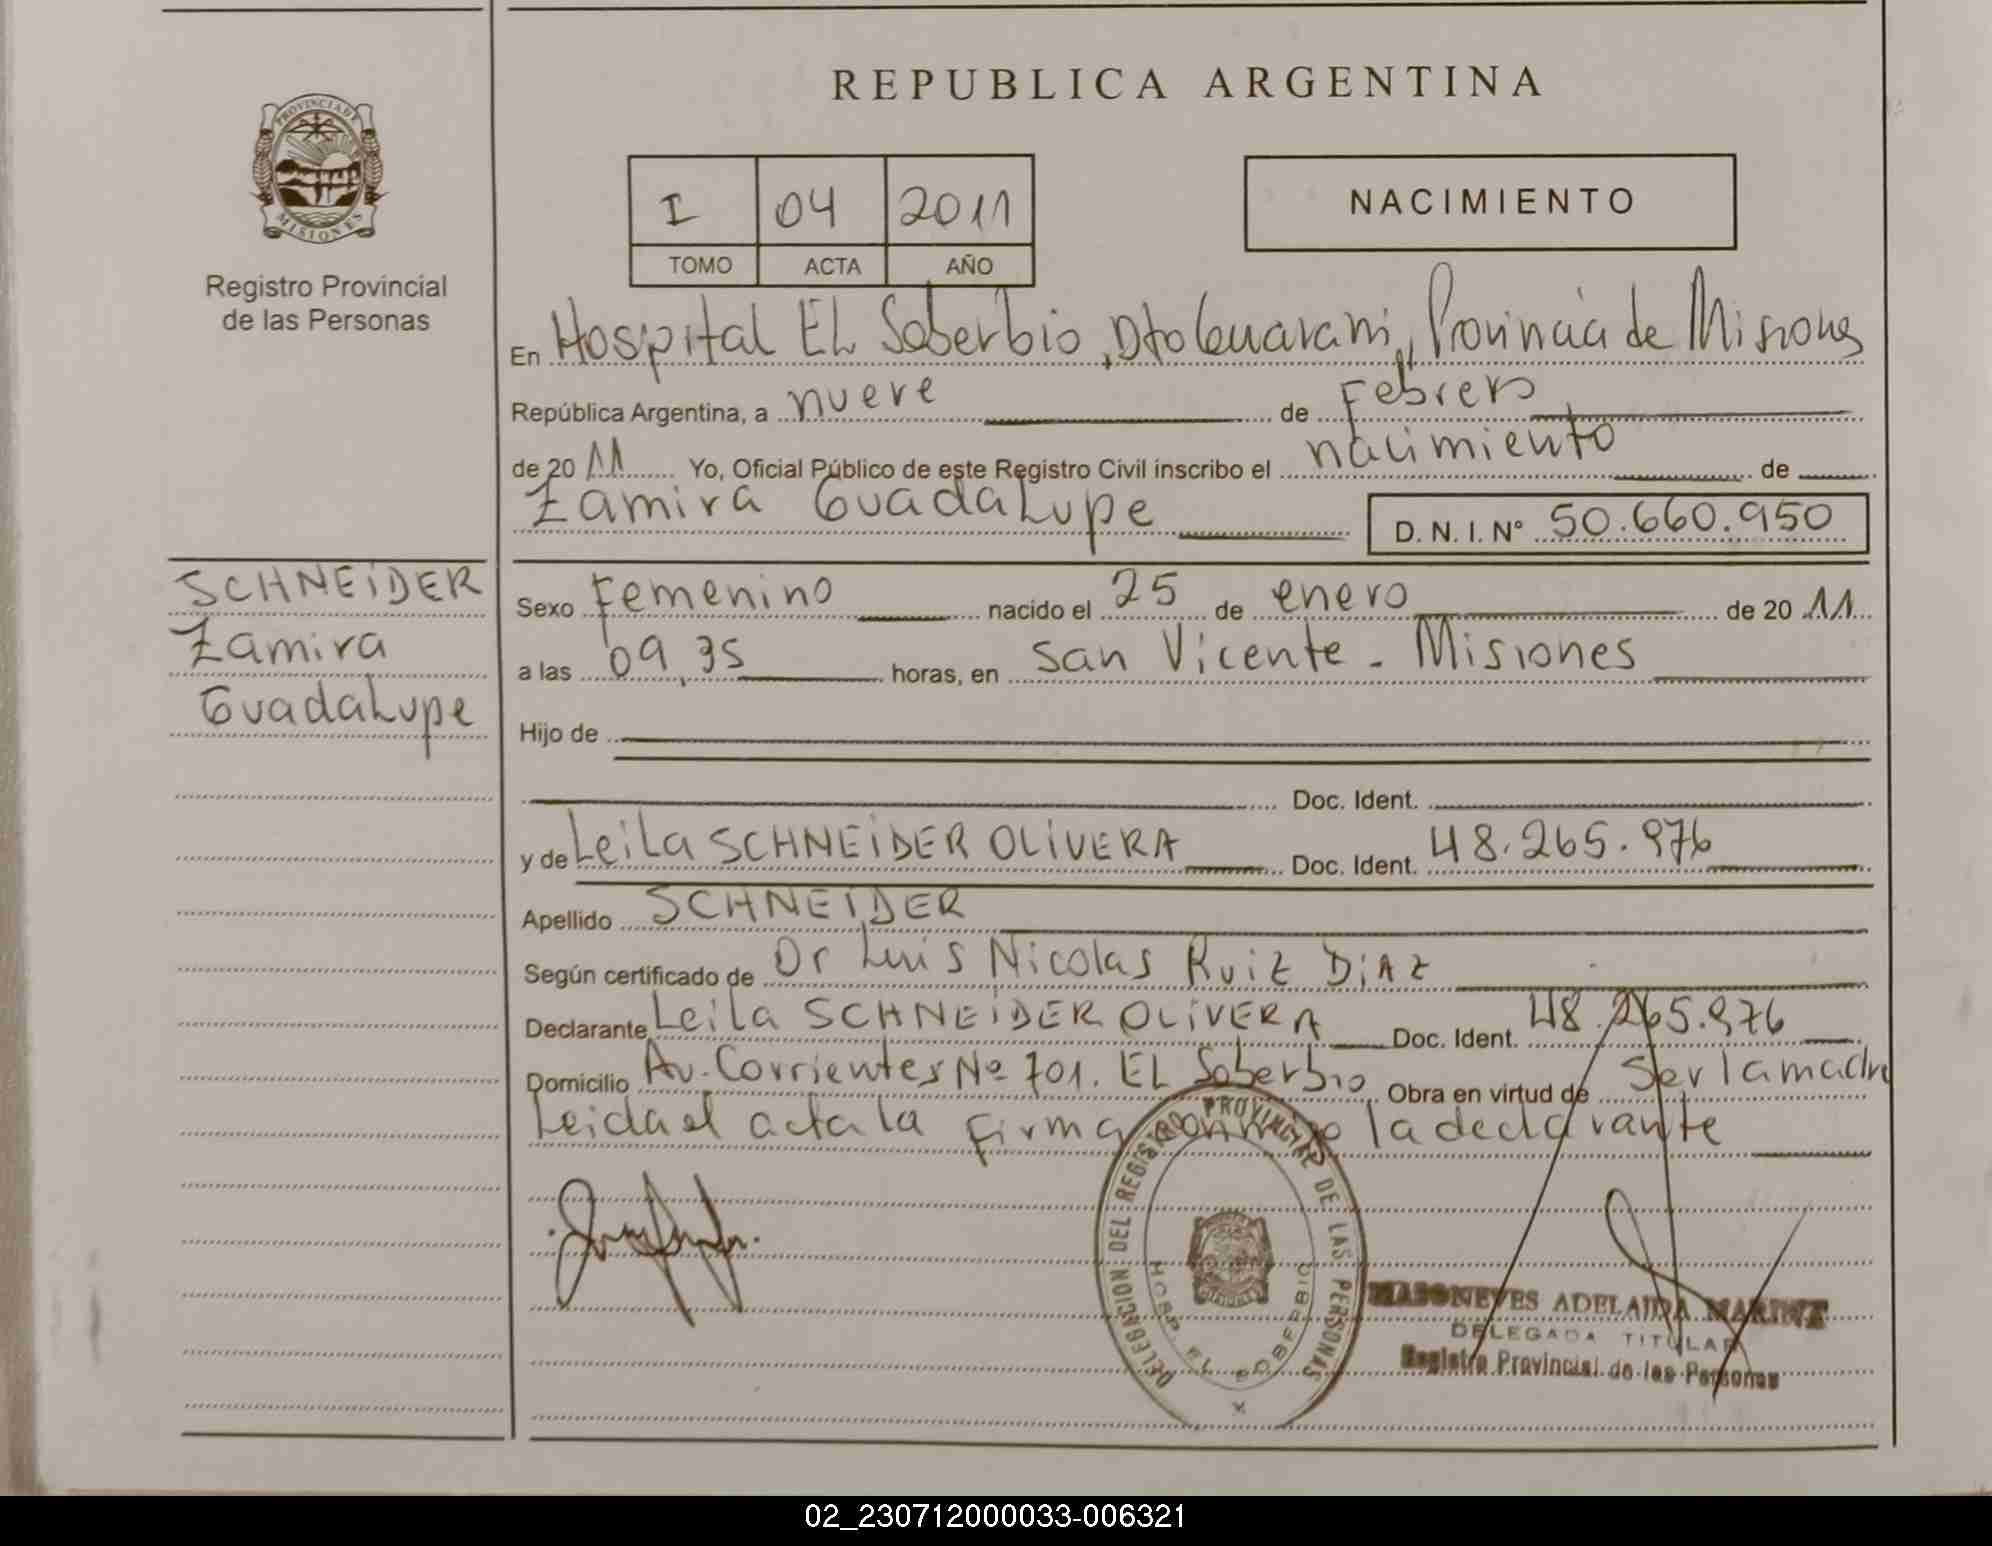 REPUBLICA ARGENTINA
PROVINCIA DE
MISIONES
Registro Provincial
de las Personas
I 04 2011
TOMO ACTA AÑO
NACIMIENTO
En Hospital EL Soberbio, Dto Guarani, Provincia de Misiones
República Argentina, a nueve de Febrero
de 20 11 Yo, Oficial Público de este Registro Civil inscribo el nacimiento de
Zamira Guadalupe
D. N. I. Nº 50.660.950
SCHNEIDER
Zamira
Guadalupe
Sexo Femenino nacido el 25 de enero de 20 11
a las 09,35 horas, en San Vicente - Misiones
Hijo de
Doc. Ident.
y de Leila SCHNEIDER OLIVERA Doc. Ident. 48.265.976
Apellido SCHNEIDER
Según certificado de Dr Luis Nicolas Ruiz DIAZ
Declarante Leila SCHNEIDER OLIVERA Doc. Ident. 48.265.976
Domicilio Av. Corrientes Nº 701. EL Soberbio Obra en virtud de ser la madre
Leida el acta la firma conmigo la declarante
DELEGACION DEL REGISTRO PROVINCIAL DE LAS PERSONAS
HOSP. EL SOBERBIO
ADELAIDA
DELEGADA TITULAR
Registro Provincial de las Personas
02_230712000033-006321